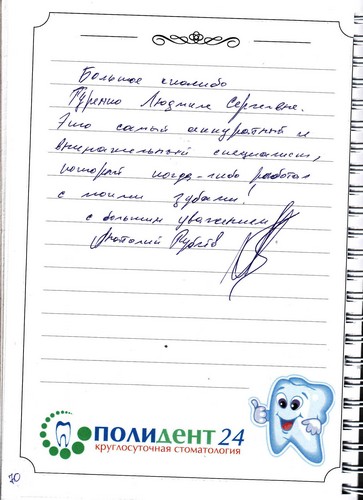 Большое спасибо
Туренко Людмиле Сергеевне.
Это самый аккуратный и
внимательный специалист,
который когда-либо работал
с моими зубами!
с большим уважением
Анатолий
ПОЛИДЕНТ 24
круглосуточная стоматология
70